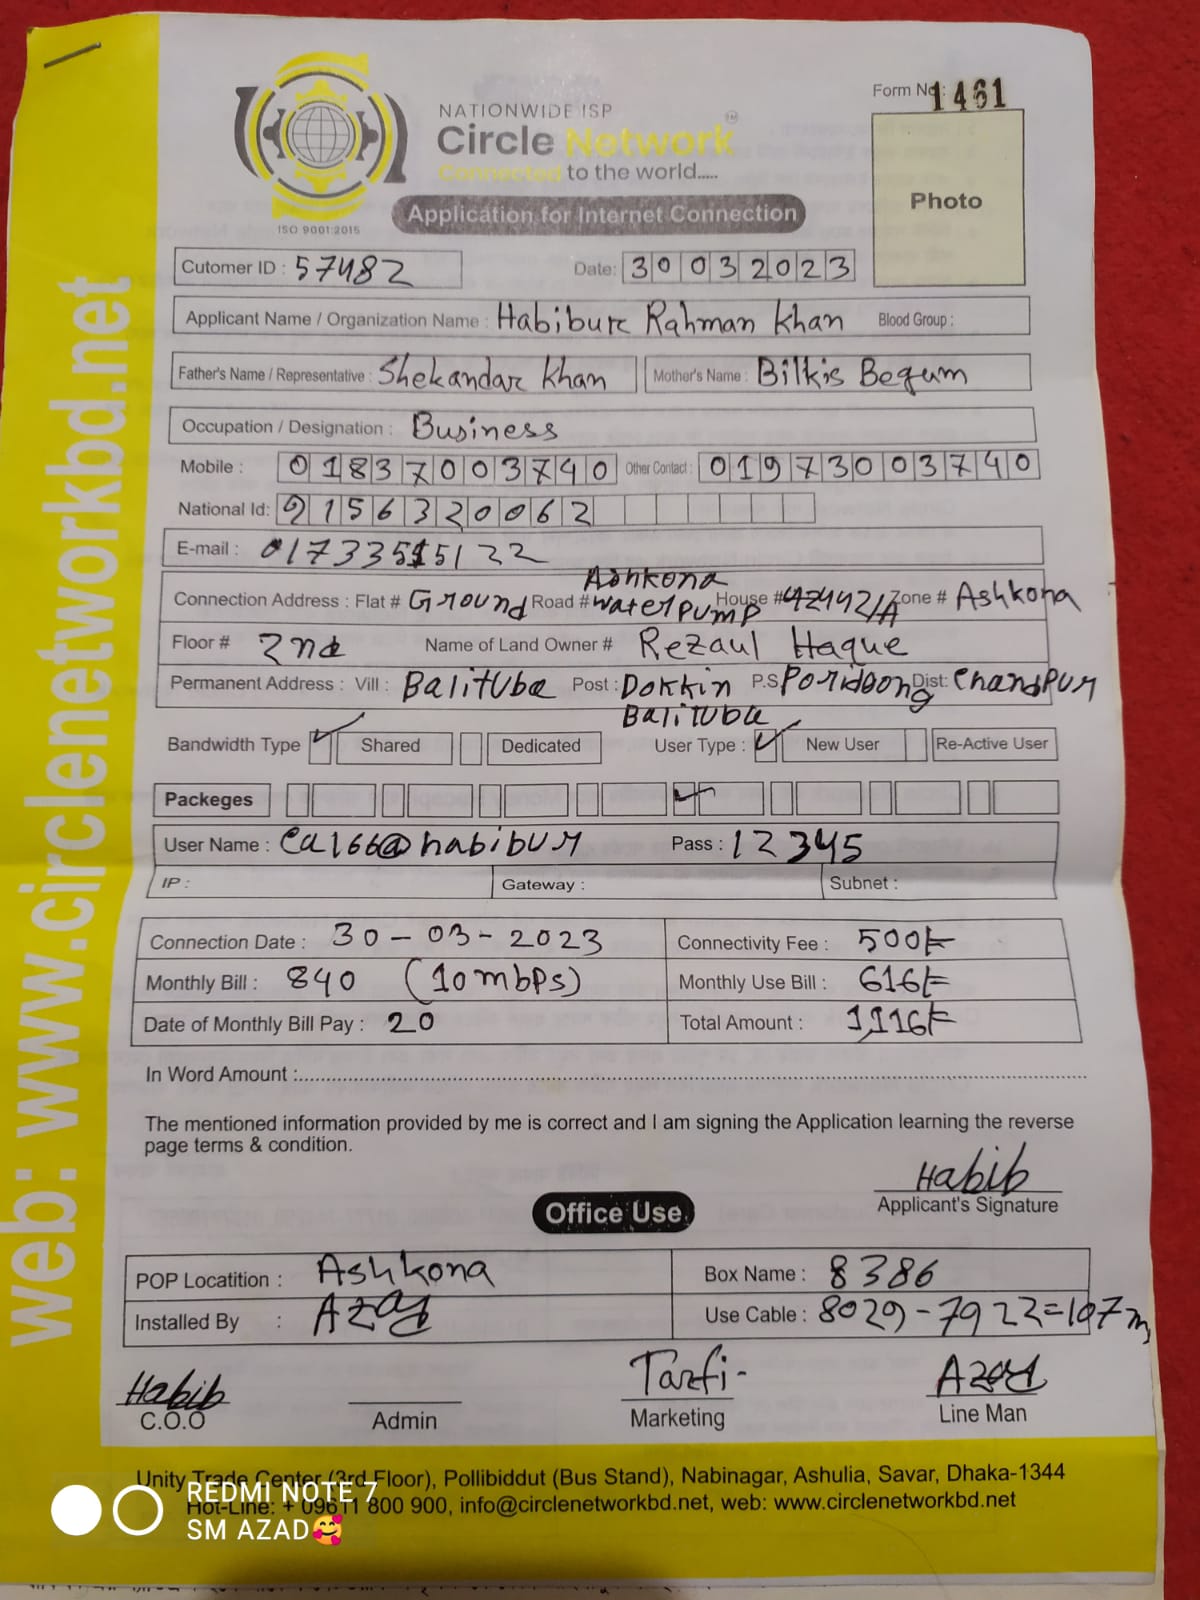 Form No: 1461
NATIONWIDE ISP
Circle Network TM
Connected to the world.....
ISO 9001:2015
Application for Internet Connection
Photo
web: www.circlenetworkbd.net
Cutomer ID : 57482 Date: 30032023
Applicant Name / Organization Name : Habibur Rahman Khan Blood Group :
Father's Name / Representative : Shekandar Khan Mother's Name : Bilkis Begum
Occupation / Designation : Business
Mobile : 01837003740 Other Contact : 01973003740
National Id: 9156320062
E-mail : 01733515122
Ashkona
Connection Address : Flat # Ground Road # water pump House # Zone # Ashkona
Floor # 2nd Name of Land Owner # Rezaul Haque
Permanent Address : Vill : Balituba Post : Dokkin P.S Poridgong Dist: Chandpur
Balituba
Bandwidth Type ✓ Shared Dedicated User Type : ✓ New User Re-Active User
Packeges ✓
User Name : Ca166@habibur Pass : 12345
IP : Gateway : Subnet :
Connection Date : 30-03-2023 Connectivity Fee : 500/=
Monthly Bill : 840 (10mbps) Monthly Use Bill : 616/=
Date of Monthly Bill Pay : 20 Total Amount : 1,116/=
In Word Amount :..........
The mentioned information provided by me is correct and I am signing the Application learning the reverse
page terms & condition.
Habib
Applicant's Signature
Office Use
POP Locatition : Ashkona Box Name : 8386
Installed By : Azad Use Cable : 8029-7922=107m
Habib Tarfi- Azad
C.O.O Admin Marketing Line Man
Unity Trade Center (3rd Floor), Pollibiddut (Bus Stand), Nabinagar, Ashulia, Savar, Dhaka-1344
Hot-Line: + 09611 800 900, info@circlenetworkbd.net, web: www.circlenetworkbd.net
REDMI NOTE 7
SM AZAD🥰